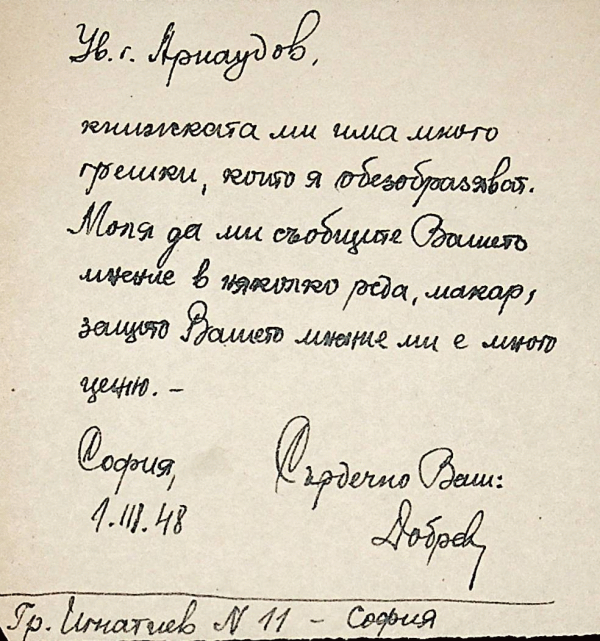 Ув. г. Арнаудов,
книжката ми има много
грешки, които я обезобразяват.
Моля да ми съобщите Вашето
мнение в няколко реда, макар,
защото Вашето мнение ми е много
ценно. –
София,
1.III.48
Сърдечно Ваш:
Добрев
Гр. Игнатиев N 11 – София